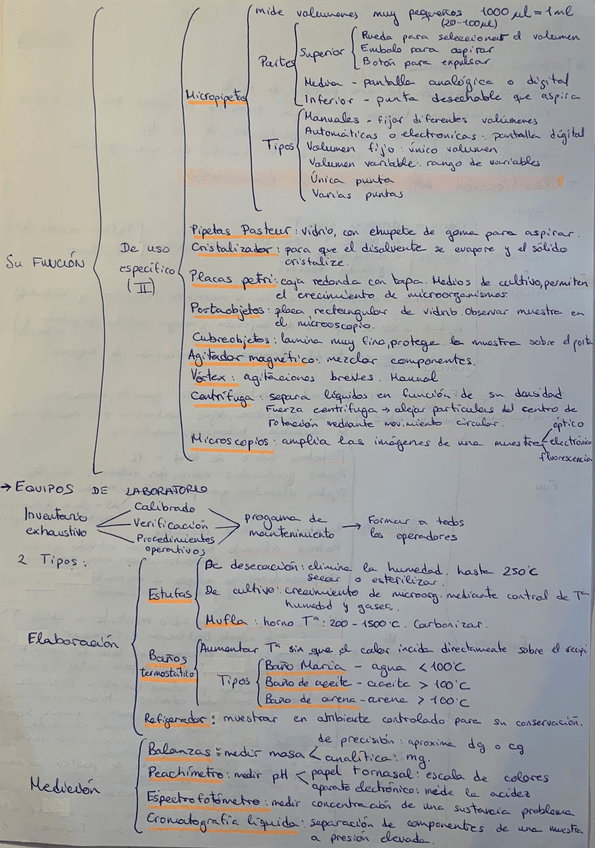 mide volumenes muy pequeños 1000 µl = 1 ml
(20-100µl)
Rueda para seleccionar el volumen
Superior
Embolo para aspirar
Botón para expulsar
Partes
Media - pantalla analógica o digital
Micropipetas
Inferior - punta desechable que aspira
Manuales - fijar diferentes volúmenes
Automáticas o electronicas: pantalla digital
Tipos
Volumen fijo: único volumen
Volumen variable: rango de variables
Única punta
Varias puntas
Pipetas Pasteur: vidrio, con chupete de goma para aspirar.
Su FUNCIÓN
De uso
específico
(II)
Cristalizador: para que el disolvente se evapore y el sólido
cristalize.
Placas petri: caja redonda con tapa. Medios de cultivo, permiten
el crecimiento de microorganismos.
Portaobjetos: placa rectangular de vidrio. Observar muestra en
el microoscopio.
Cubreobjetos: lamina muy fina, protege la muestra sobre el porta
Agitador magnético: mezclar componentes.
Vórtex: agitaciones breves. Manual
Centrífuga: separa líquidos en función de su densidad
Fuerza centrífuga → alejar particulas del centro de
rotación mediante movimiento circular.
Microscopios: amplia las imágenes de una muestra
óptico
electrónico
fluorescencia
→ EQUIPOS DE LABORATORIO
Inventario
exhaustivo
Calibrado
Verificación
Procedimientos
operativos
programa de
mantenimiento
→ Formar a todos
los operadores
2 Tipos:
Elaboración
Estufas
De desecación: elimina la humedad. hasta 250°C
secar o esterilizar.
De cultivo: crecimiento de microorg. mediante control de Tª
humedad y gases.
Mufla: horno Tª: 200 - 1500°C. Carbonizar.
Baños
termostático
Aumentar Tª sin que el calor incida directamente sobre el recipi
Tipos
Baño Maria - agua < 100°C
Baño de aceite - aceite > 100°C
Baño de arena - arena > 100°C
Refrigerador: muestras en ambiente controlado para su conservación.
Medición
Balanzas: medir masa
de precisión: aproxima dg o cg
analítica: mg.
Peachímetro: medir pH
papel tornasol: escala de colores
aparato electrónico: mide la acidez
Espectrofotómetro: medir concentración de una sustancia problema
Cromatografía líquida: separación de componentes de una muestra
a presión elevada.